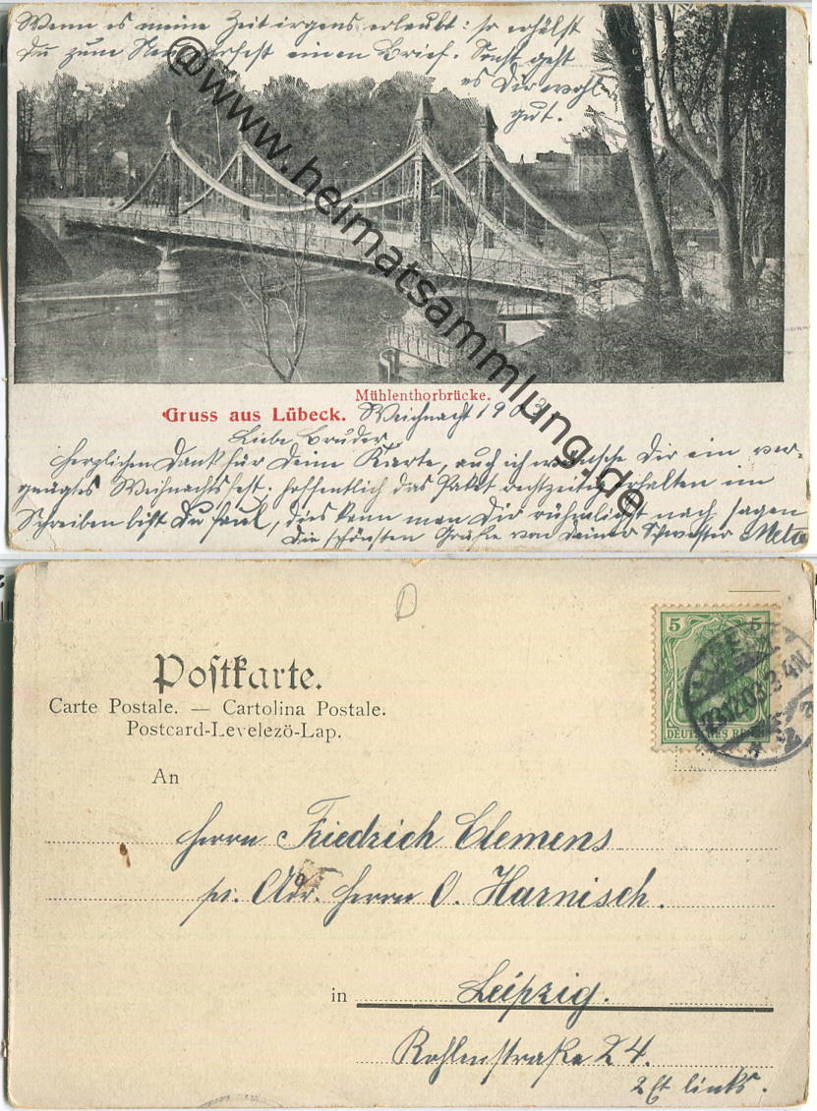 Wenn es meine Zeit irgens erlaubt: so erhälst
Du zum Neujahrsfest einen Brief. Sonst geht
es Dir wohl
gut.
@www.heimatsammlung.de
Mühlenthorbrücke.
Gruss aus Lübeck. Weihnacht 1903.
Liebe Bruder
Herzlichen Dank für Deine Karte, auch ich wünsche Dir ein ver-
gnügtes Weihnachtsfest. Hoffentlich das Paket rechtzeitig erhalten im
Schreiben bist Du faul, dies kann man Dir rühmlichst nach sagen
Die schönsten Grüße von Deiner Schwester Meta
D
Postkarte.
Carte Postale. — Cartolina Postale.
Postcard-Levelezö-Lap.
5 5
DEUTSCHES REICH
23.12.03. 3-4N.
An
Herrn Friedrich Clemens
pr. Adr. Herrn O. Harnisch.
in Leipzig.
Kohlenstraße 24.
2 Et links.